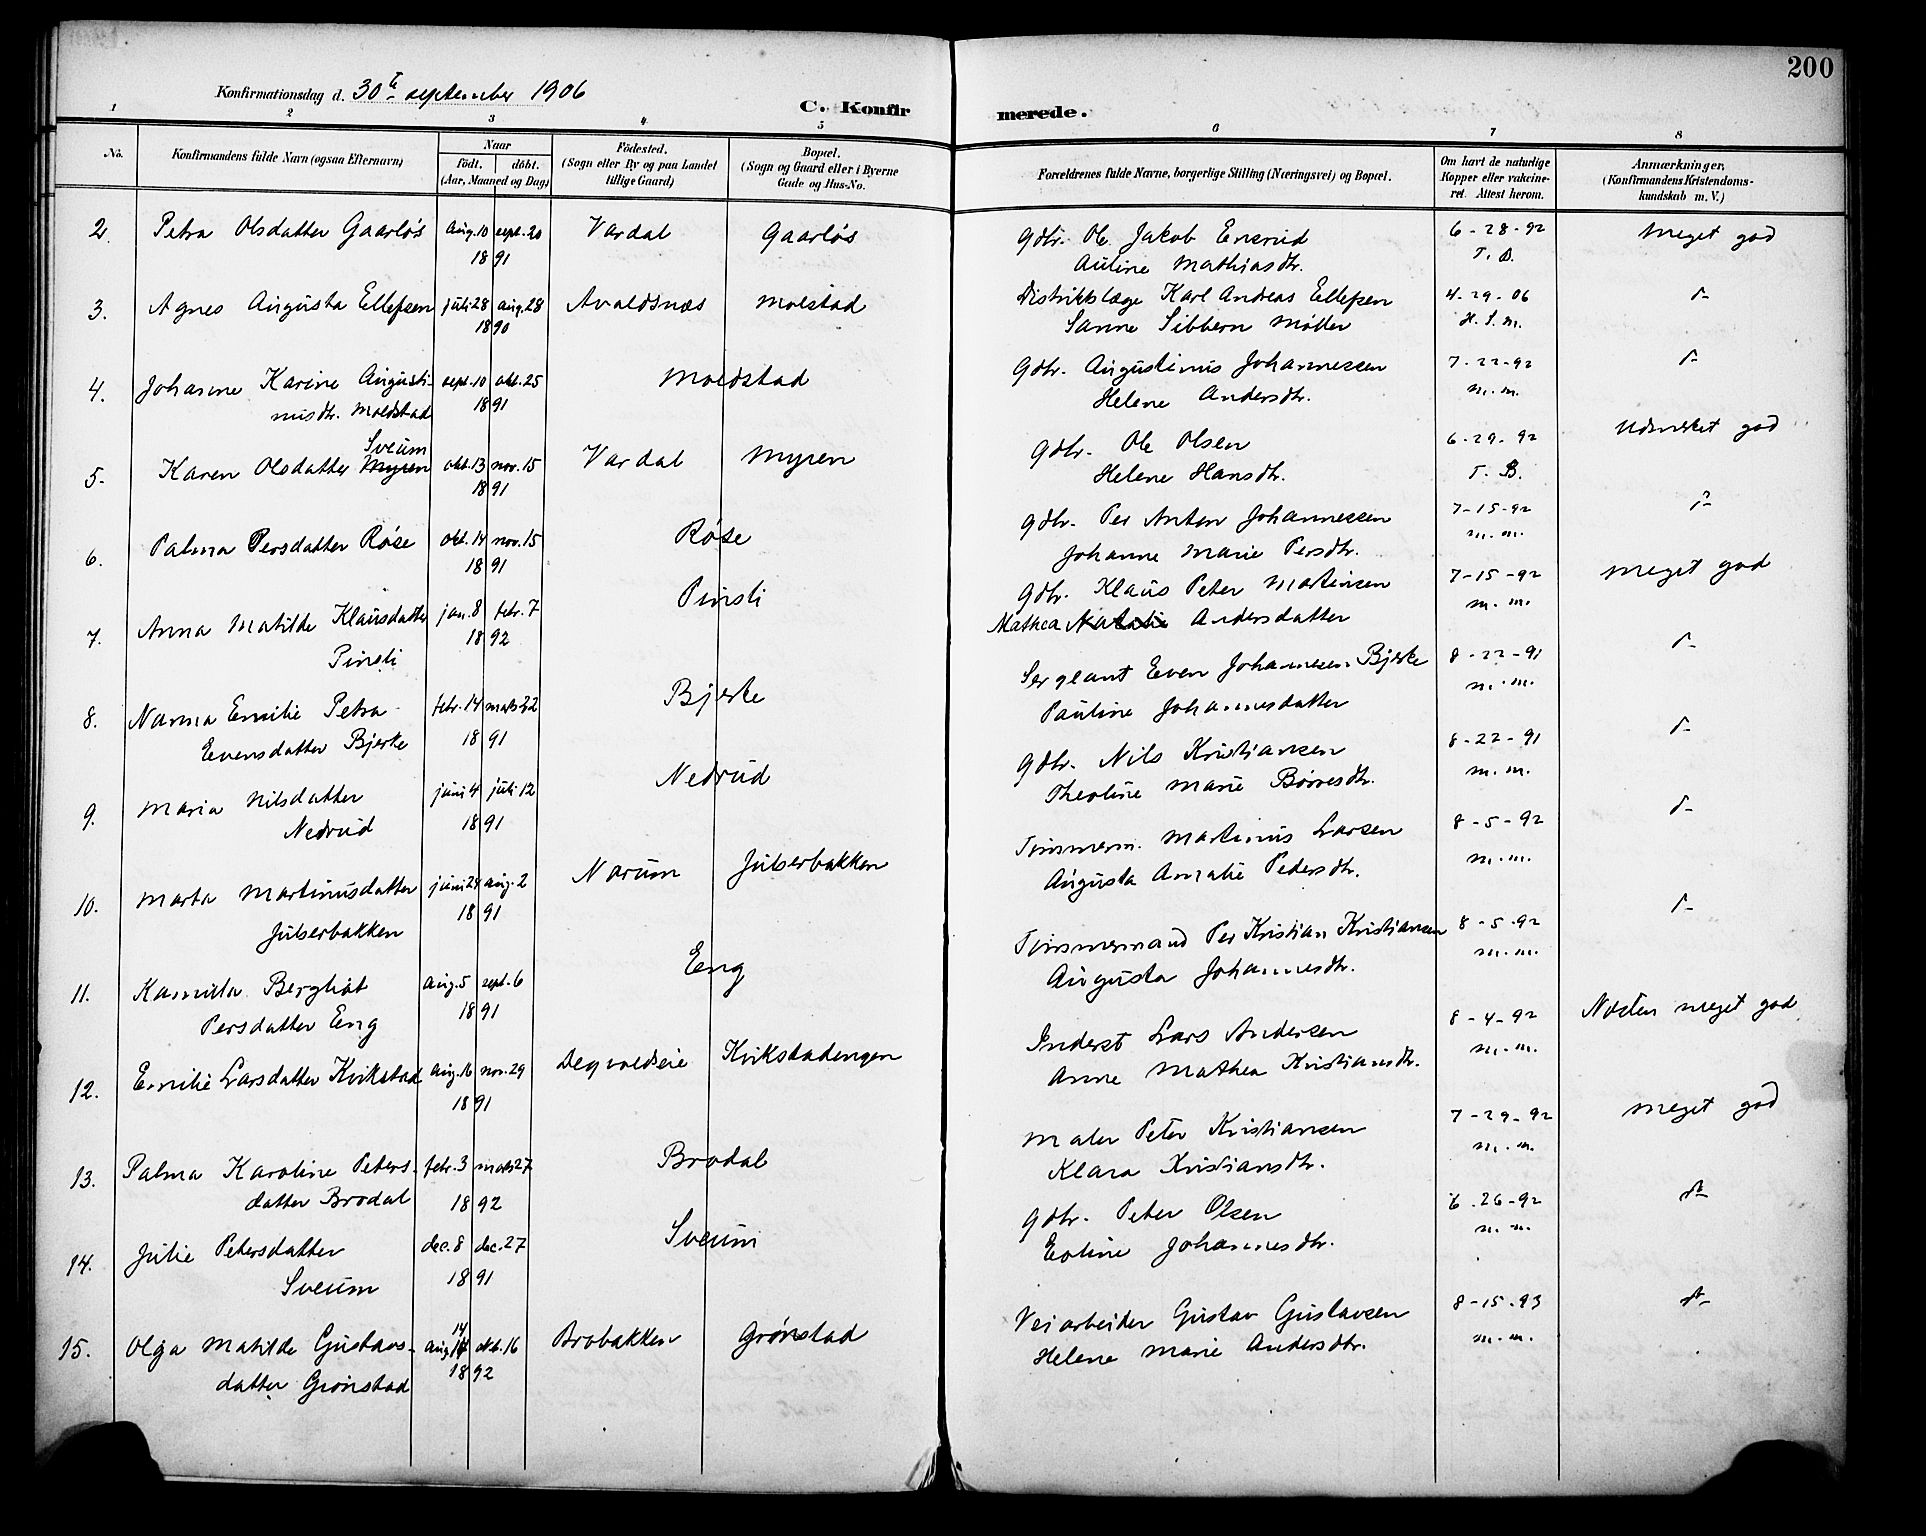 200
Konfirmationsdag d. 30te september 1906
C. Konfir merede.
1 2 3 4 5 6 7 8
No.
Konfirmandens fulde Navn (ogsaa Efternavn)
Naar
födt. döbt.
(Aar, Maaned og Dag)
Födested.
(Sogn eller By og paa Landet
tillige Gaard)
Bopæl.
(Sogn og Gaard eller i Byerne
Gade og Hus-No.
Forældrenes fulde Navne, borgerlige Stilling (Næringsvei) og Bopæl.
Om havt de naturlige
Kopper eller vakcine-
ret. Attest herom.
Anmærkninger.
(Konfirmandens Kristendoms-
kundskab m. V.)
2. Petra Olsdatter Gaarløs aug. 10 sept. 20 Vardal Gaarløs Gdbr. Ole Jakob Enerud 6-28-92 Meget god
1891 Auline Mathiasdtr. T. B.
3. Agnes Augusta Ellefsen juli 28 aug. 28 Avaldsnæs Molstad Distriktslæge Karl Andreas Ellefsen 4-29-06 d-
1890 Sanne Sibbern Møller H. S. M.
4. Johanne Karine Augusti- sept. 10 okt. 25 Moldstad Gdbr. Augustinus Johannessen 7-22-92 d-
nusdtr. Moldstad 1891 Helene Andersdtr. m. m.
Sveum
5. Karen Olsdatter Myren okt. 13 nov. 15 Vardal Myren Gdbr. Ole Olsen 6-29-92 Udmerket god
1891 Helene Hansdtr. T. B.
6. Palma Persdatter Røise okt. 14 nov. 15 Røise Gdbr. Per Anton Johannessen 7-15-92 d-
1891 Johanne Marie Persdtr. m. m.
7. Anna Matilde Klausdatter jan. 8 febr. 7 Pinsli Gdbr. Klaus Peter Martinsen 7-15-92 Meget god
Pinsli 1892 Mathea Natalie Andersdatter m. m.
8. Nanna Emilie Petra febr. 14 mars 22 Bjerke Sergeant Even Johannesen Bjerke 8-22-91 d-
Evensdatter Bjerke 1891 Pauline Johannesdatter m. m.
9. Maria Nilsdatter juni 4 juli 12 Nedrud Gdbr. Nils Kristiansen 8-22-91 d-
Nedrud 1891 Theoline Marie Børresdtr. m. m.
10. Marta Martinusdatter juni 28 aug. 2 Narum Julserbakken Timmerm. Martinus Larsen 8-5-92 d-
Julserbakken 1891 Augusta Amalie Pedersdtr. m. m.
11. Kamilla Berghat aug. 5 sept. 6 Eng Timmermand Per Kristian Kristiansen 8-5-92 d-
Persdatter Eng 1891 Augusta Johannesdtr. m. m.
12. Emilie Larsdatter Kvikstad aug. 16 nov. 29 Degvoldseie Kvikstadengen Inderst Lars Andersen 8-4-92 Næsten meget god
1891 Anne Mathea Kristiansdtr. m. m.
13. Palma Karoline Peters- febr. 3 mars 27 Brodal Maler Peter Kristiansen 7-29-92 Meget god
datter Brodal 1892 Klara Kristiansdtr. m. m.
14. Julie Petersdatter dec. 8 dec. 27 Sveum Gdbr. Peter Olsen 6-26-92 d-
Sveum 1891 Eoline Johannesdtr. m. m.
14
15. Olga Matilde Gustavs- aug. okt. 16 Brobakken Grønstad Veiarbeider Gustav Gustavsen 8-15-93 d-
datter Grønstad 1892 Helene Marie Andersdtr. m. m.